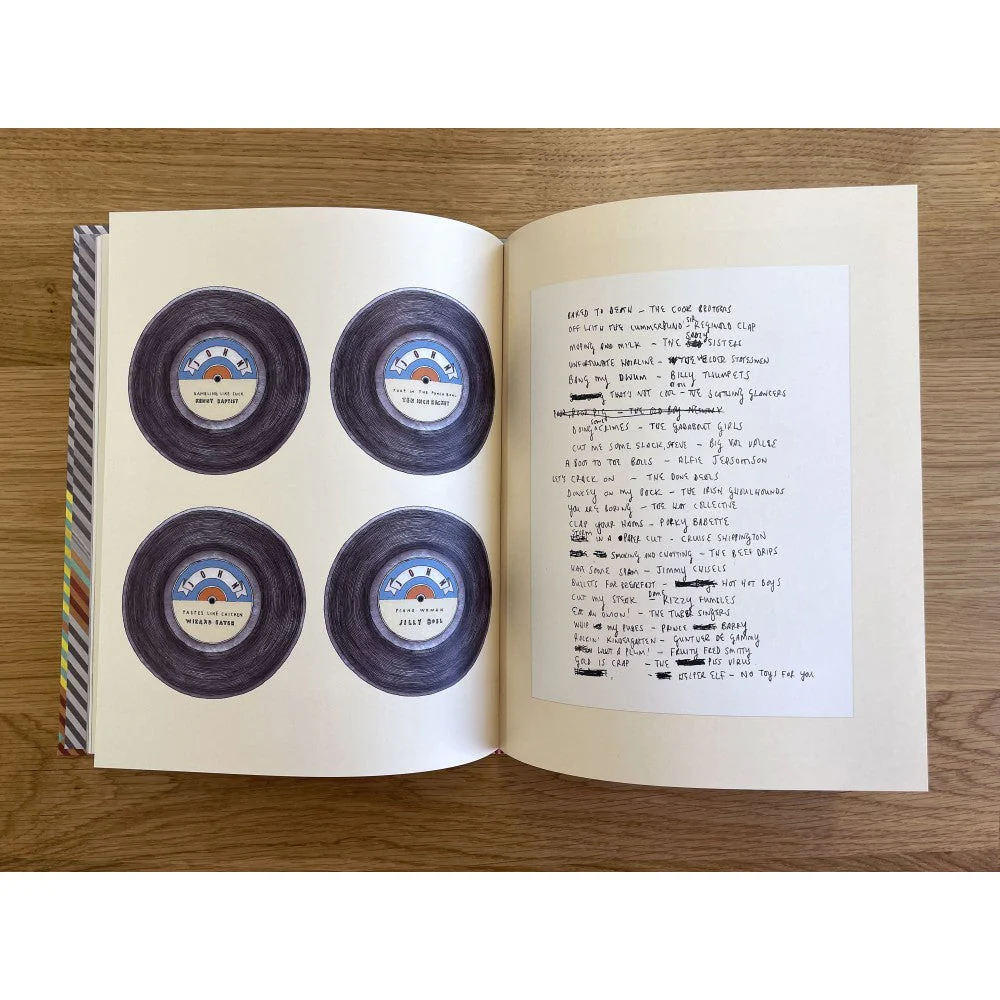 JOHN
GAMBLING LIKE CLUCK
KENNY BAPTIST
JOHN
TURD IN THE PUNCH BOWL
TEN INCH
JOHN
TASTES LIKE CHICKEN
WIZARD EATER
JOHN
PIANO WOMAN
JILLY BOEL
BAKED TO DEATH - THE COOK BROTHERS
OFF WITH THE CUMMERBUND - SIR REGINALD CLAP
MOPING AND MILK - THE SOOZY SISTERS
UNFORTUNATE HAIRLINE - THE ELDER STATESMEN
BANG MY DRUM - BILLY THUMPETS
THAT'S NOT COOL - THE SCATHING GLANCERS
- THE OLD BOY NETWORK
DOING SOME CRIMES - THE GADABOUT GIRLS
CUT ME SOME SLACK, STEVE - BIG VAL
A BOOT TO THE BALLS - ALFIE
LET'S CRACK ON - THE DONE DEALS
DONKEY ON MY BACK - THE IRISH GHOULHOUNDS
YOU ARE BORING - THE HAT COLLECTIVE
CLAP YOUR HAMS - PORKY BABETTE
STORM IN A PAPER CUT - CRUISE SHIPPINGTON
SMOKING AND CHATTING - THE BEEF DRIPS
HAVE SOME SPAM - JIMMY CHISELS
BULLETS FOR BREAKFAST - HOT HOT BOYS
CUT MY STEAK - DAME RIZZY FUMBLES
EAT AN ONION! - THE TUBER SINGERS
WHIP MY PUBES - PRINCE BARRY
ROCKIN' KINDERGARTEN - GUNTHER DE GAMMY
A PLUM! - FRUITY FRED SMITTY
GOLD IS CRAP - THE PISS VIRUS
- HELPER ELF - NO TOYS FOR YOU